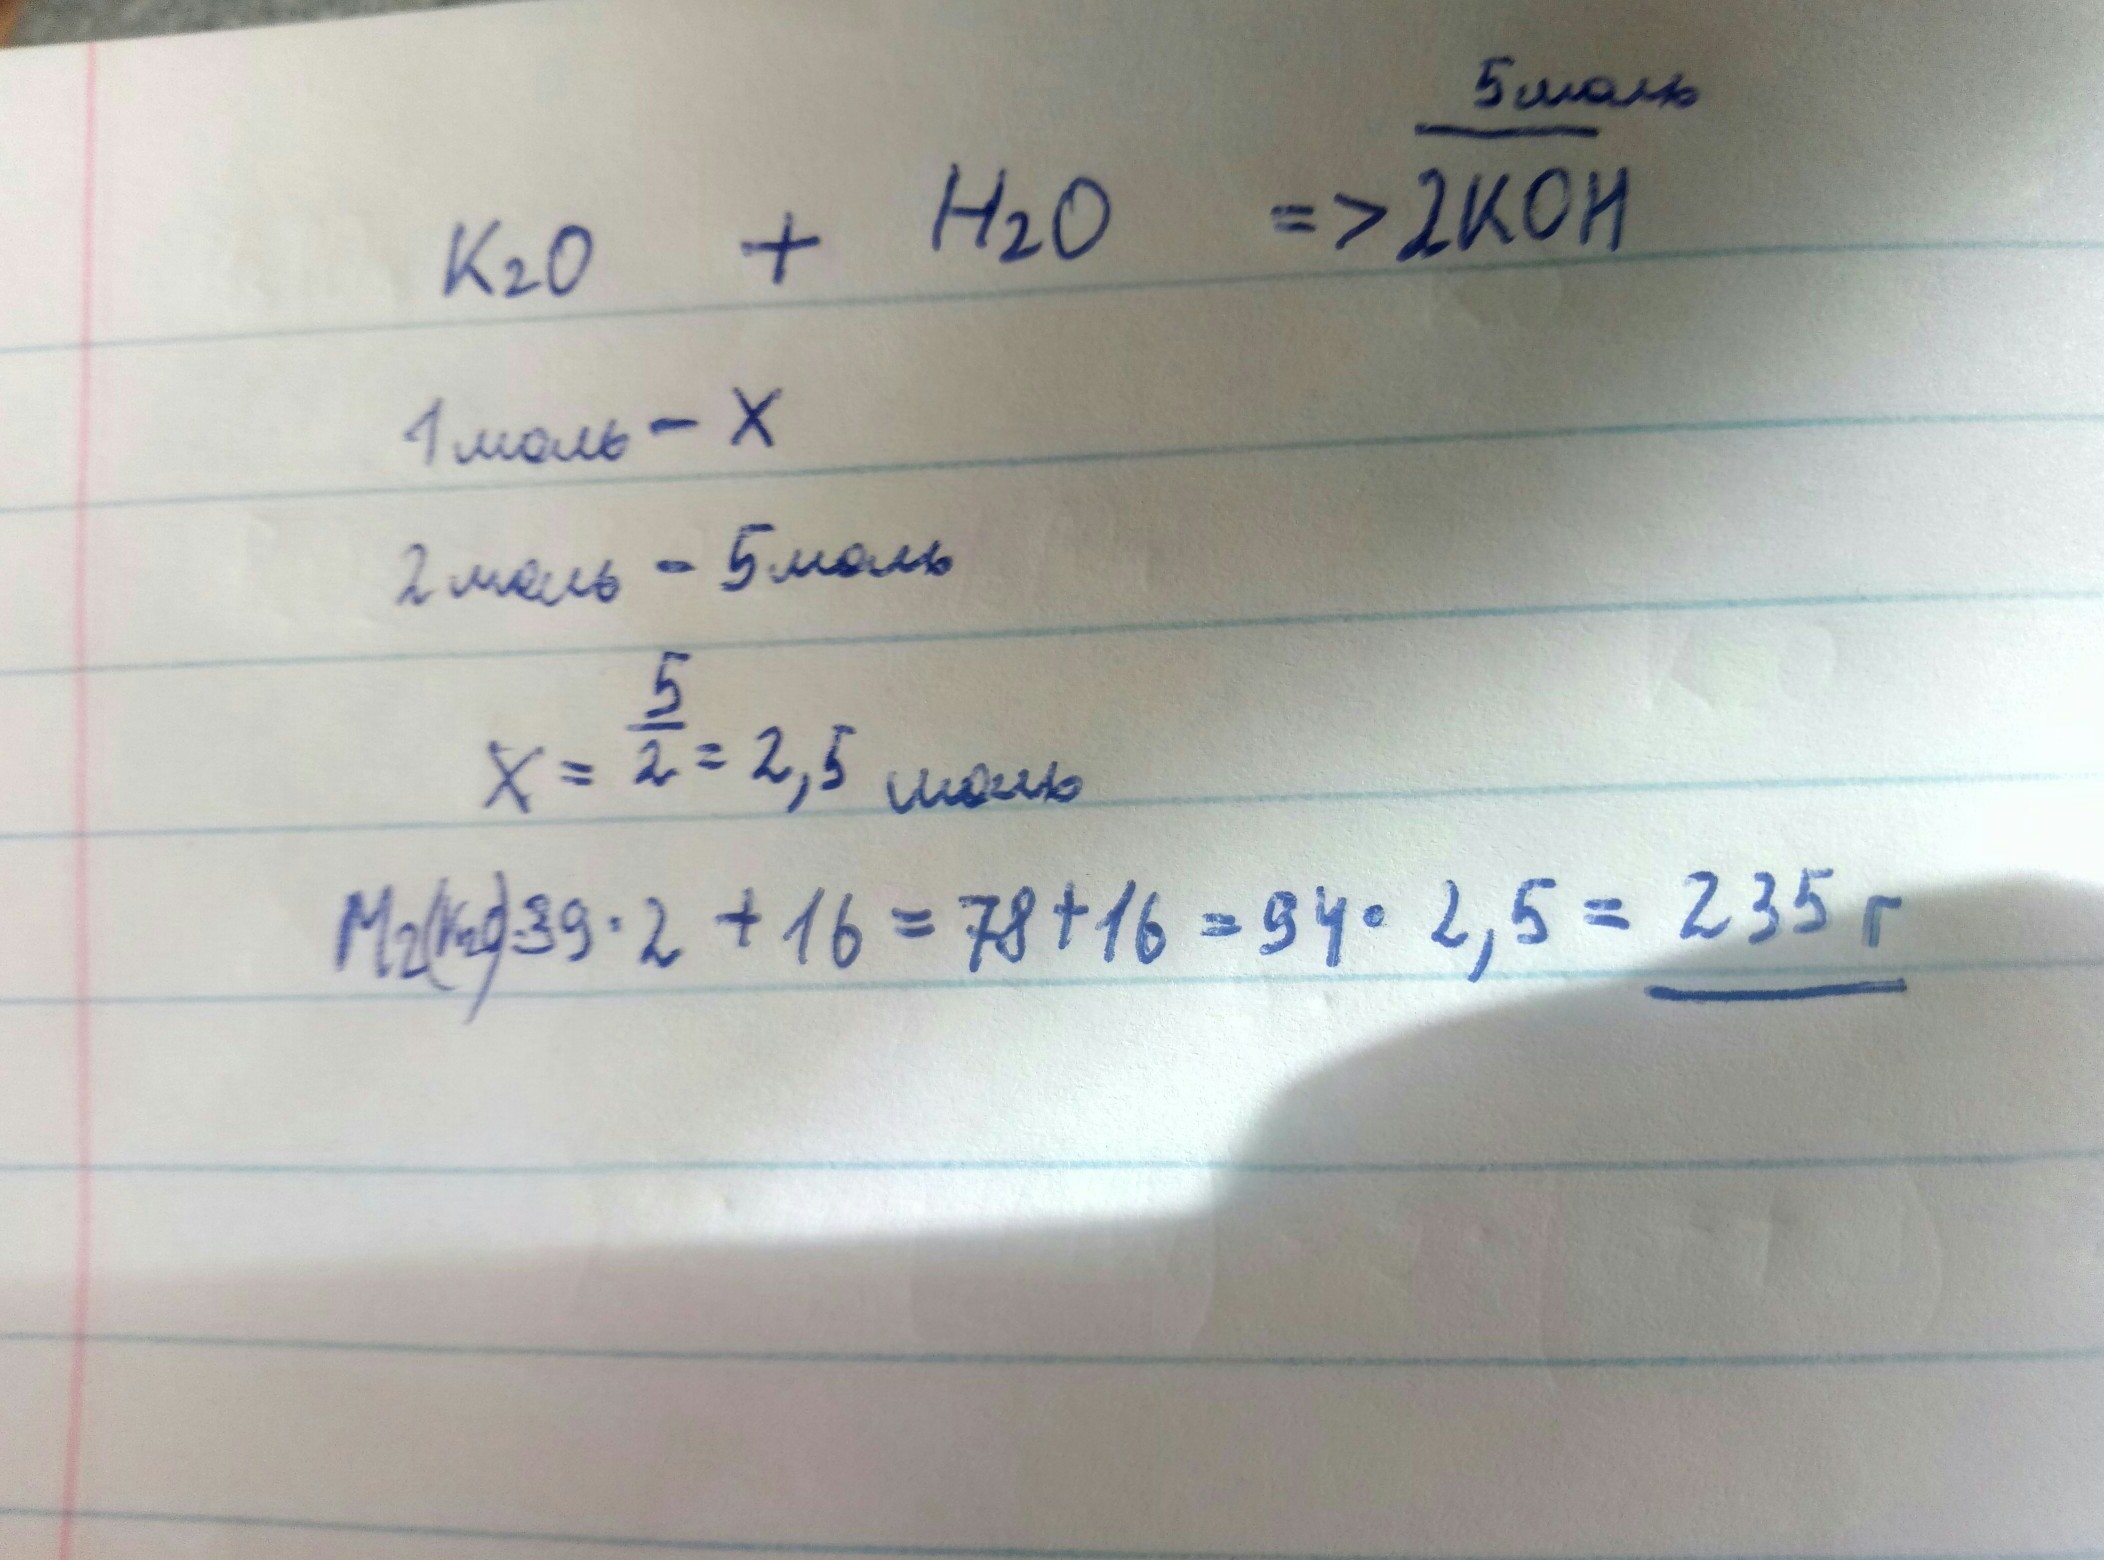 5 моль
K₂O + H₂O => 2KOH
1 моль - X
2 моль - 5 моль
X = 5/2 = 2,5 моль
M₂(K₂O)=39·2 + 16 = 78+16 = 94 · 2,5 = 235 г